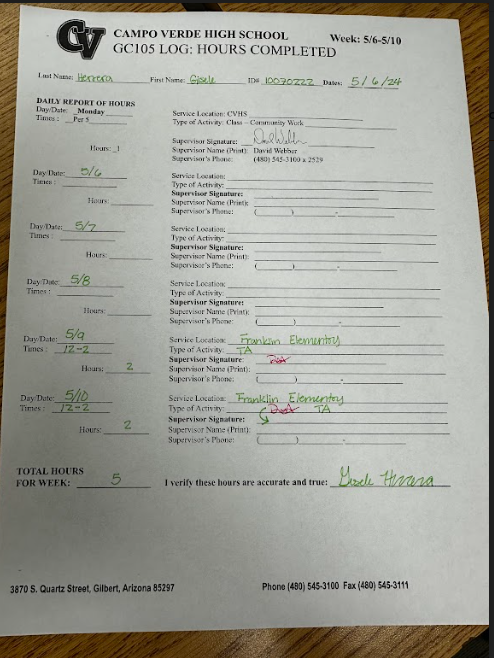 CV
CAMPO VERDE HIGH SCHOOL Week: 5/6-5/10
GC105 LOG: HOURS COMPLETED
Last Name: Herrera First Name: Gisele ID# 10070222 Dates: 5/6/24
DAILY REPORT OF HOURS
Day/Date: Monday Service Location: CVHS
Times : Per 5 Type of Activity: Class – Community Work
Supervisor Signature:
Hours: 1 Supervisor Name (Print): David Webber
Supervisor's Phone: (480) 545-3100 x 2529
Day/Date: 5/6 Service Location:
Times : Type of Activity:
Supervisor Signature:
Hours: Supervisor Name (Print):
Supervisor's Phone: ( ) -
Day/Date: 5/7 Service Location:
Times : Type of Activity:
Supervisor Signature:
Hours: Supervisor Name (Print):
Supervisor's Phone: ( ) -
Day/Date: 5/8 Service Location:
Times : Type of Activity:
Supervisor Signature:
Hours: Supervisor Name (Print):
Supervisor's Phone: ( ) -
Day/Date: 5/9 Service Location: Franklin Elementry
Times : 12-2 Type of Activity: TA
Supervisor Signature:
Hours: 2 Supervisor Name (Print):
Supervisor's Phone: ( ) -
Day/Date: 5/10 Service Location: Franklin Elementry
Times : 12-2 Type of Activity: TA
Supervisor Signature:
Hours: 2 Supervisor Name (Print):
Supervisor's Phone: ( ) -
TOTAL HOURS
FOR WEEK: 5 I verify these hours are accurate and true: Gisele Herrera
3870 S. Quartz Street, Gilbert, Arizona 85297 Phone (480) 545-3100 Fax (480) 545-3111